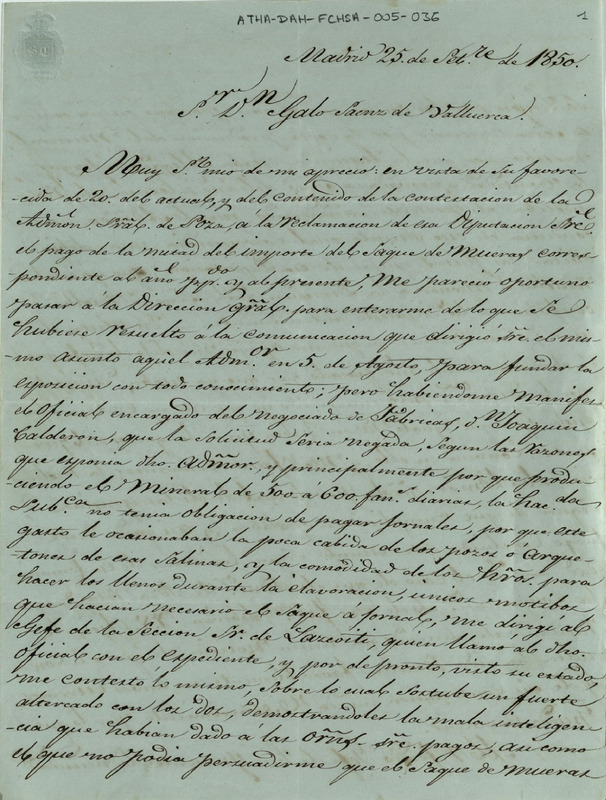 ATHA-DAH-FCHSA-005-036
1
Madrid 25. de Set.re de 1850.
S.r D.n Galo Saenz de Valluerca.
Muy S.r mio de mi aprecio: en vista de su favore-
cida de 20. del actual, y del contenido de la contestacion de la
Admon. Pral. de Poza, á la reclamacion de esa Diputacion sre.
el pago de la mitad del importe del Saque de Mueras corres
pondiente al año ppdo. y al presente, me pareció oportuno
pasar á la Direccion gral. para enterarme de lo que se
hubiese resuelto á la comunicacion que dirigió sre. el mis-
mo asunto aquel Adm.or en 5. de Agosto, para fundar la
exposicion con todo conocimiento; pero habiendome manifes
el oficial encargado del negociado de Fábricas, d.n Joaquin
Calderon, que la solicitud seria negada, segun las razones
que esponia dho. Admor., y principalmente por que produ-
ciendo el Mineral de 500 á 600 fan.s diarias, la hac.da
pub.ca no tenia obligacion de pagar jornales, por que este
gasto le ocasionaban la poca cabida de los pozos o arque-
tones de esas Salinas, y la comodidad de los hros. para
hacer los llenos durante la elavoracion, unicos motibos
que hacian necesario el saque á jornal, me dirigí al
Gefe de la Seccion Sr. de Lazcoiti, quien llamó al dho.
oficial con el expediente, y por de pronto, visto su estado,
me contestó lo mismo, sobre lo cual sostube un fuerte
altercado con los dos, demostrandoles la mala inteligen
-cia que habian dado a las orns. sre. pagos, asi como
el que no podia persuadirme que el Saque de Mueras